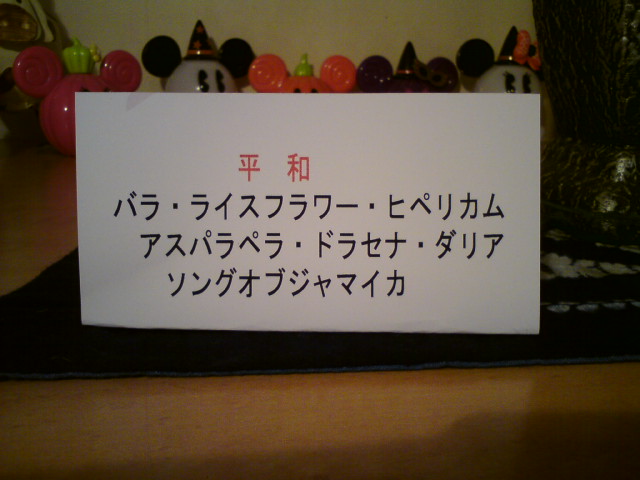 平 和
バラ・ライスフラワー・ヒペリカム
アスパラペラ・ドラセナ・ダリア
ソングオブジャマイカ